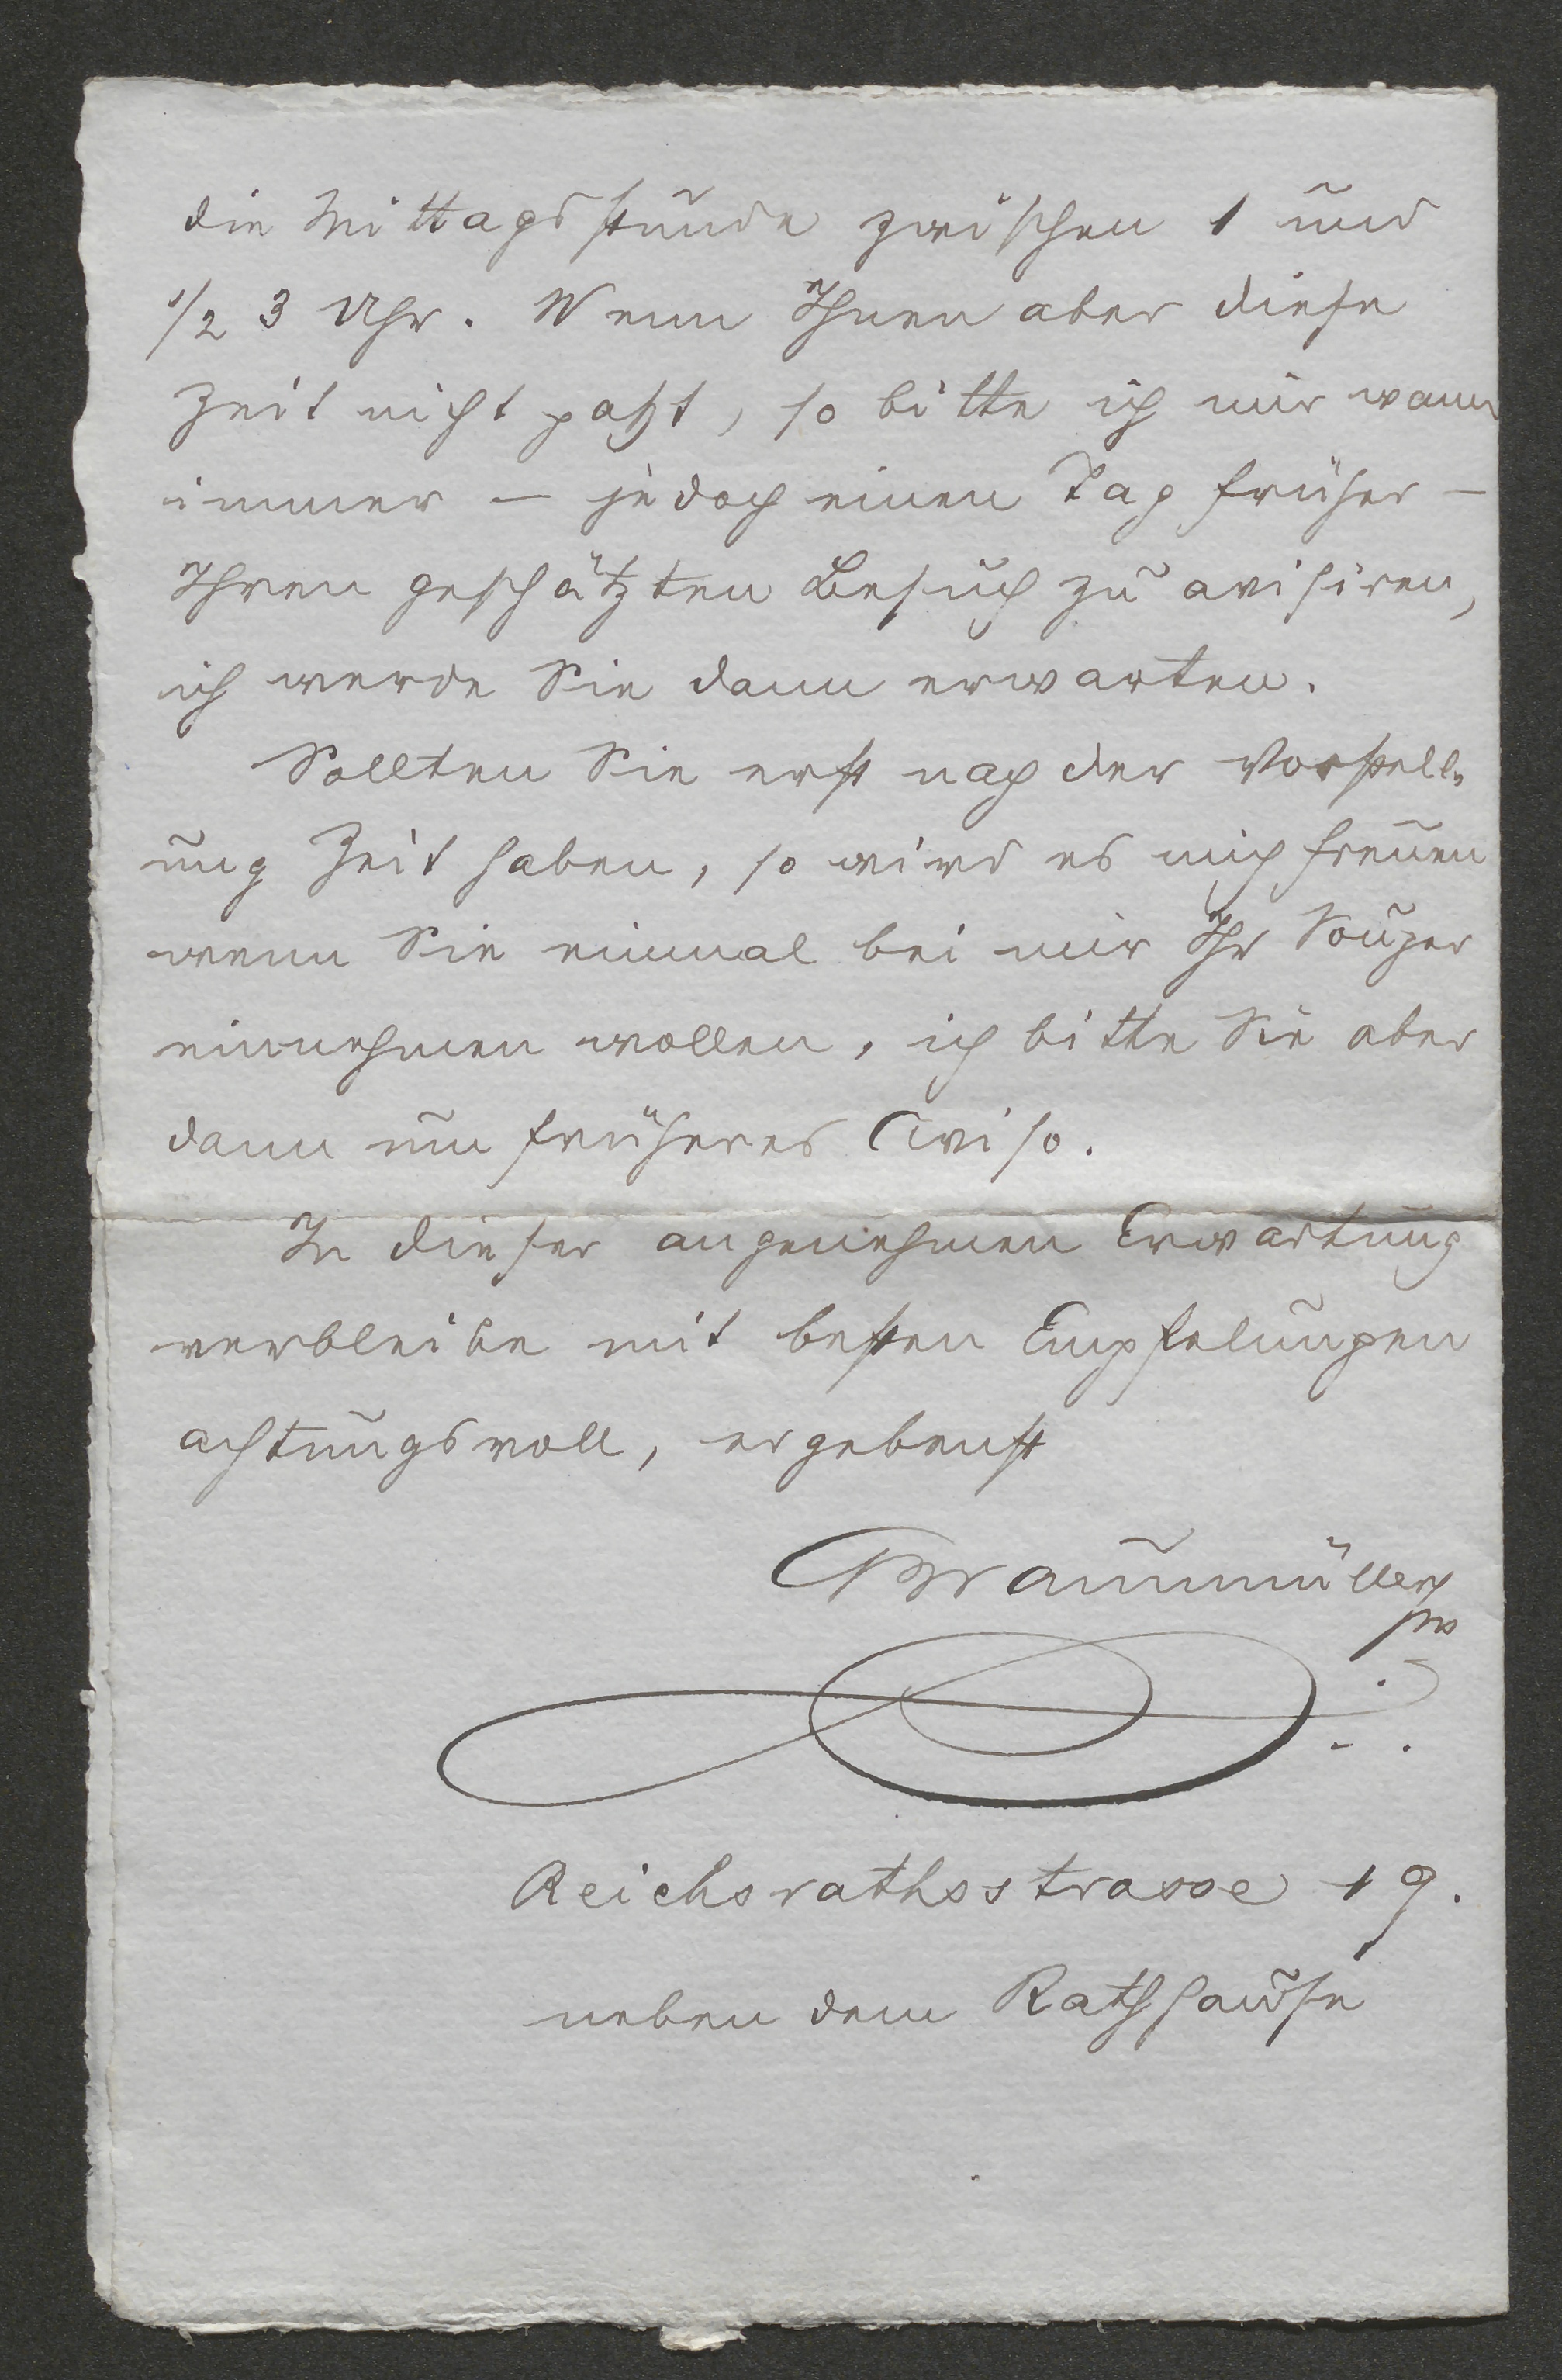 die Mittagsstunde zwischen 1 und
1/2 3 Uhr. Wenn Ihnen aber diese
Zeit nicht paßt, so bitte ich mir wann
immer – jedoch einen Tag früher –
Ihren geschätzten Besuch zu avisiren,
ich werde Sie dann erwarten.
Sollten Sie erst nach der Vorstell-
ung Zeit haben, so wird es mich freuen
wenn Sie einmal bei mir Ihr Souper
einnehmen wollen, ich bitte Sie aber
dann um früheres Aviso.
In dieser angenehmen Erwartung
verbleibe mit besten Empfelungen
achtungsvoll, ergebenst
Braumüller
Reichsrathsstrasse 19.
neben dem Rathhause